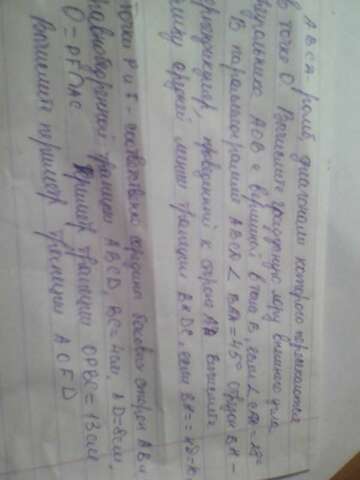 ABCД ромб, диагонали которого пересекаются
в точке О. Вычислите градусную меру внешнего угла
треугольника AOB с вершиной в точке B, если ∠
В параллограмме ABCД ∠ BДA = 45° Отрезок BH –
перпендикуляр, проведенный к стороне AД. Вычислите
длину средней линии трапеции BHDC, если BH =
Точки P и F – соответственно середины боковых сторон AB и
равнобедренной трапеции ABCD, BC = 4см, AD = 8см,
O = PF∩AC Периметр трапеции OPBC = 13 см
Вычислите периметр трапеции ACFD